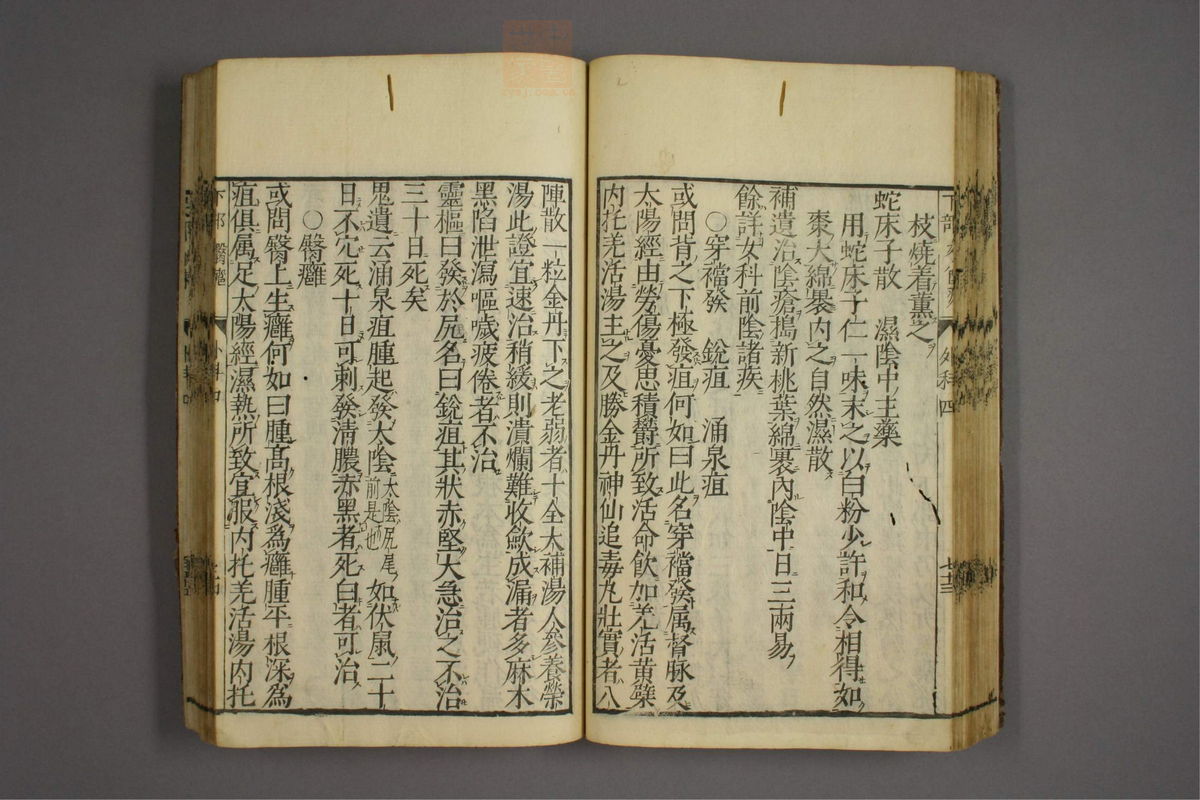 枝燒着薰之
蛇床子散　濕陰中主藥
用蛇床子仁一味末之以白粉少許和令相得如
棗大綿裹内之自然濕散
補遺治陰瘡搗新桃葉綿裹內陰中日三兩易
餘詳女科前陰諸疾
○穿襠發　銳疽　涌泉疽
或問背之下極發疽何如曰此名穿襠發属督脉及
太陽經由勞傷憂思積欝所致活命飲加羌活黄蘗
内托羌活湯主之及勝金丹神仙追毒丸壯實者八
陣散一粒金丹下之老弱者十全大補湯人參養榮
湯此證宜速治稍緩則潰爛難收斂成漏者多麻木
黑陷泄瀉嘔噦疲倦者不治
靈樞曰發於尻名曰銳疽其狀赤堅大急治之不治
三十日死矣
鬼遺云涌泉疽腫起發太陰太陰尻尾前是也如伏鼠二十
日不穴死十日可刺發清膿赤黑者死白者可治
○臀癰
或問臀上生癰何如曰腫高根淺爲癰腫平根深爲
疽俱属足太陽經濕熱所致宜服内托羌活湯内托
下部　臀癰
外科四
七十三